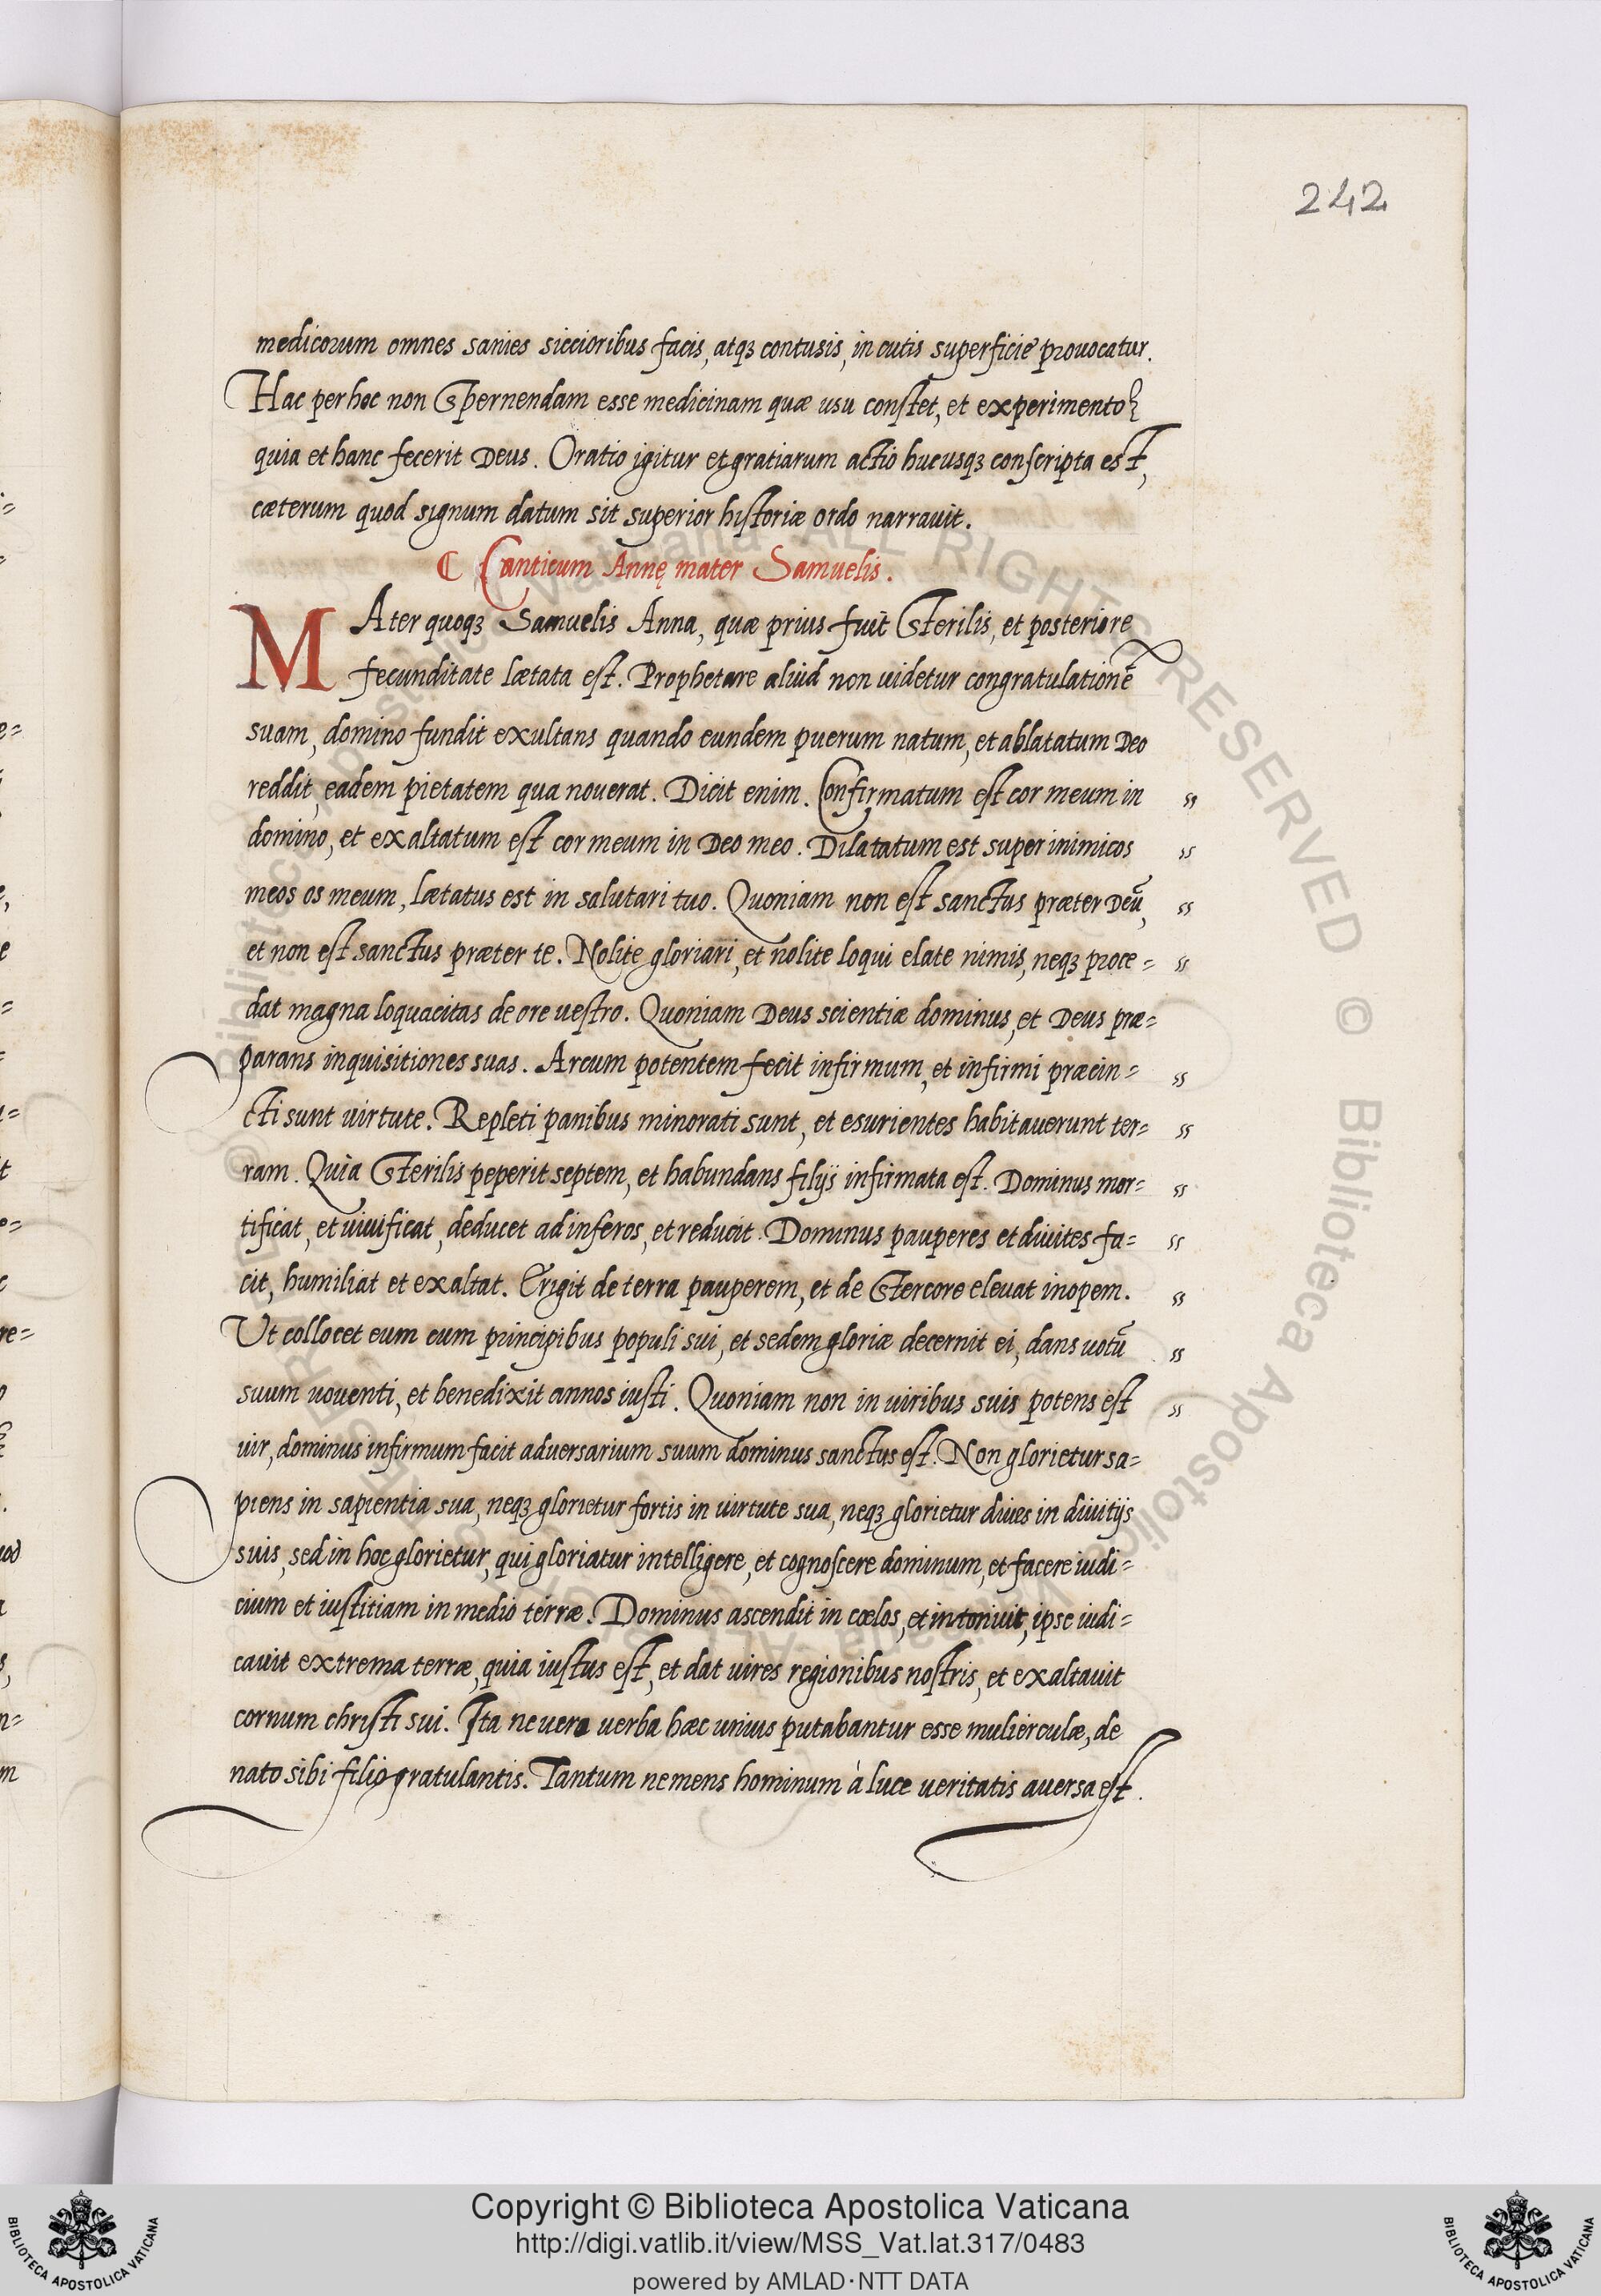 242
medicorum omnes sanies siccioribus facis, atqꝫ contusis, in cutis superficiē prouocatur.
Hac per hoc non spernendam esse medicinam quæ usu constet, et experimentoꝝ
quia et hanc fecerit Deus. Oratio igitur et gratiarum actio hucusqꝫ conscripta est,
cæterum quod signum datum sit superior historiæ ordo narrauit.
⸿ Canticum Annę mater Samuelis.
MAter quoqꝫ Samuelis Anna, quæ prius fuīt sterilis, et posteriore
fecunditate lætata est. Prophetare aliud non uidetur congratulationē
suam, domino fundit exultans quando eundem puerum natum, et ablatatum Deo
reddit, eadem pietatem qua nouerat. Dicit enim. Confirmatum est cor meum in „
domino, et exaltatum est cor meum in Deo meo. Dilatatum est super inimicos „
meos os meum, lætatus est in salutari tuo. Quoniam non est sanctus præter Deū, „
et non est sanctus præter te. Nolite gloriari, et nolite loqui elate nimis, neqꝫ proce= „
dat magna loquacitas de ore uestro. Quoniam Deus scientiæ dominus, et Deus præ=
parans inquisitiones suas. Arcum potentem fecit infirmum, et infirmi præcin= „
cti sunt uirtute. Repleti panibus minorati sunt, et esurientes habitauerunt ter= „
ram. Quia sterilis peperit septem, et habundans filijs infirmata est. Dominus mor= „
tificat, et uiuificat, deducet ad inferos, et reducit. Dominus pauperes et diuites fa= „
cit, humiliat et exaltat. Erigit de terra pauperem, et de stercore eleuat inopem. „
Ut collocet eum cum principibus populi sui, et sedem gloriæ decernit ei, dans uotū „
suum uouenti, et benedixit annos iusti. Quoniam non in uiribus suis potens est „
uir, dominus infirmum facit aduersarium suum dominus sanctus est. Non glorietur sa=
piens in sapientia sua, neqꝫ glorietur fortis in uirtute sua, neqꝫ glorietur diues in diuitijs
suis, sed in hoc glorietur, qui gloriatur intelligere, et cognoscere dominum, et facere iudi=
cium et iustitiam in medio terræ. Dominus ascendit in cœlos, et intoniuit, ipse iudi=
cauit extrema terræ, quia iustus est, et dat uires regionibus nostris, et exaltauit
cornum christi sui. Ita ne uero uerba hæc unius putabantur esse mulierculæ, de
nato sibi filio gratulantis. Tantum ne mens hominum à luce ueritatis auersa est.
Copyright © Biblioteca Apostolica Vaticana
http://digi.vatlib.it/view/MSS_Vat.lat.317/0483
powered by AMLAD·NTT DATA